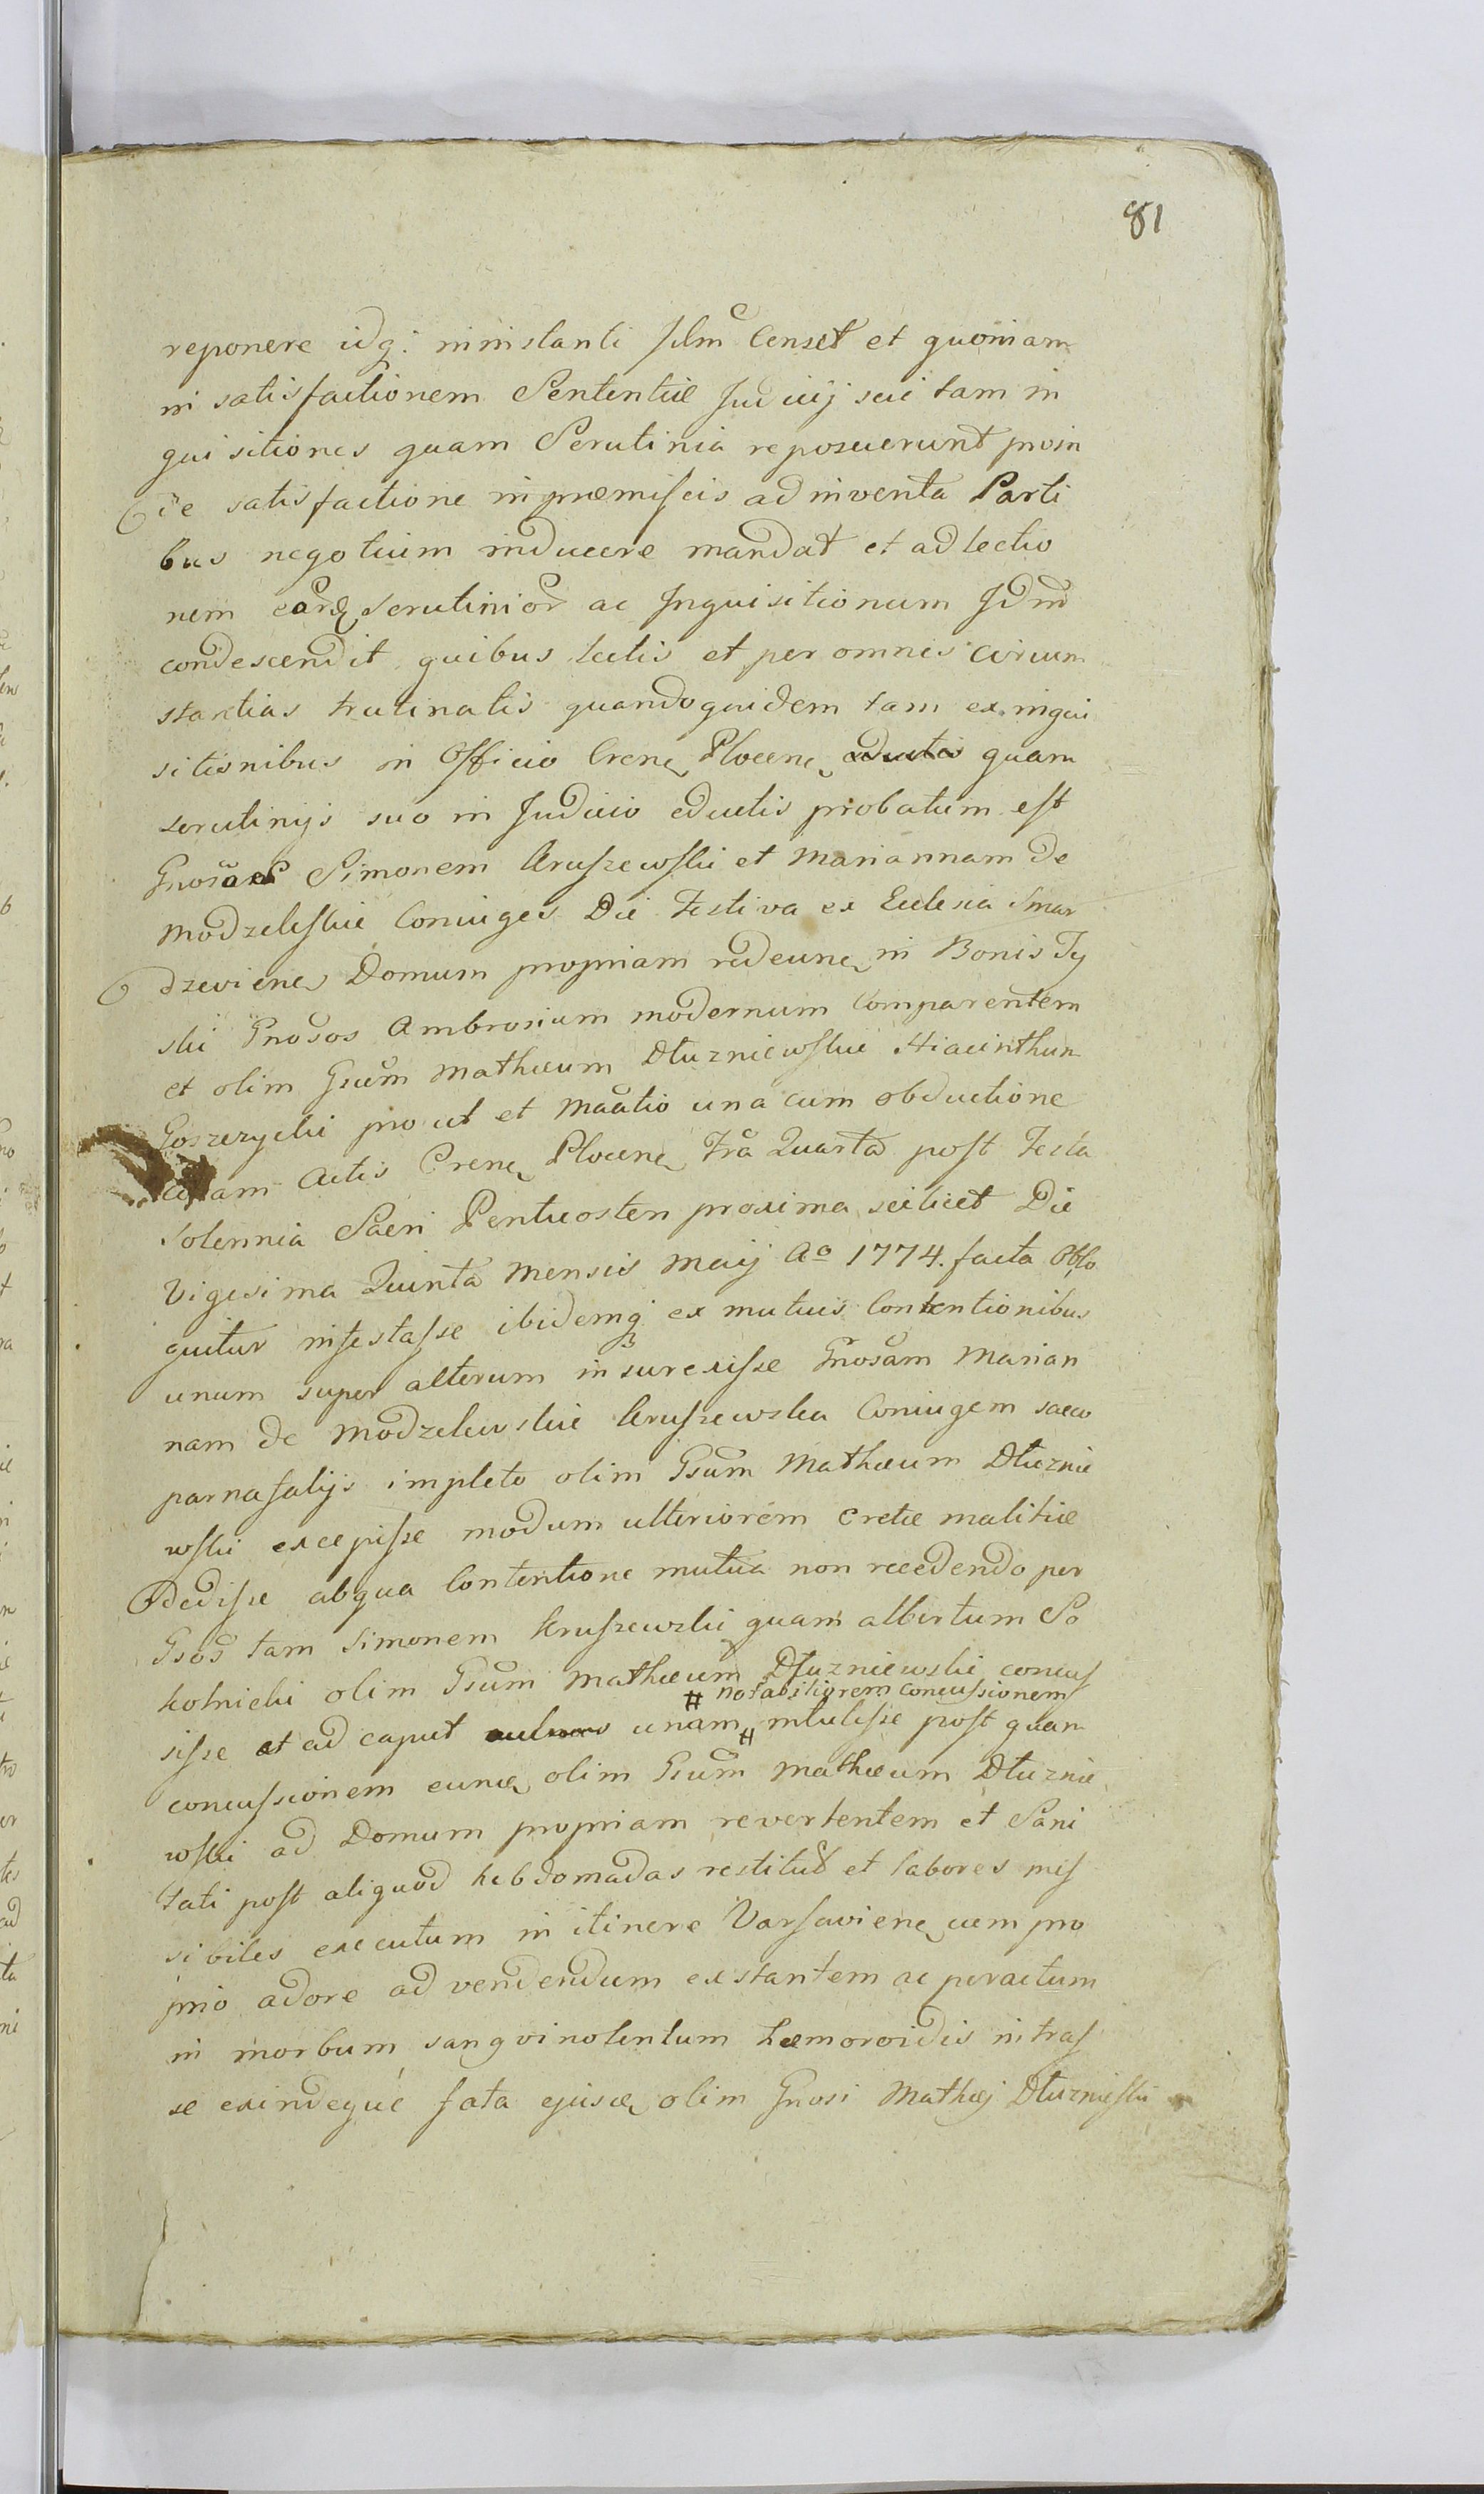 81
reponere idq: in instanti Jdm Censet et quoniam
in satisfactionem Sententiæ Judicij sui tam in
quisitiones quam Scrutinia reposuerunt proin
de satisfactione in præmissis adinventa Parti
bus negotium inducere mandat et ad lectio
nem earq Scrutinior ac Inquisitionum Jdm
condescendit quibus lectis et per omnes circum
stantias trutinatis quandoquidem tam ex inqui
sitionibus in Officio Crenę Plocenę eductis quam
scrutinijs suo in Judicio eductis probatum est
Gnosos Simonem Kruszewski et Mariannam de
Modzeleskie Coniuges Die Festiva ex Eclesia Smar
dzevienę Domum propriam redeunę in Bonis Ty
ski Gnosos Ambrosium modernum Comparentem
et olim Gsum Mathæum Dłuzniewskie Hiacinthum
Goszczycki pro ut et Maatio una cum obductione
coram Actis Crenę Plocenę Fra Quarta post Festa
Solennia Sacri Pentecosten proxima scilicet Die
Vigesima Quinta Mensis Maij Ao 1774. facta Oblo
quitur infestasse ibidemq ex mutuis Contentionibus
unum super alterum insurexisse Gnosam Marian
nam de Modzelewskie Kruszewska Coniugem sacco
parnasalijs impleto olim Gsum Mathæum Dłuznie
wski excepisse modum ulteriorem cretæ malitiæ
dedisse abqua Contentione mutua non recedendo per
Gsos tam Simonem Kruszewski quam Albertum So
kolnicki olim Gsum Mathæum Dłuzniewski concus
# notabiliorem concussionem
sisse et ad caput unam # intulisse post quam
concussionem eunę olim Gsum Mathæum Dłuznie
wski ad Domum propriam revertentem et Sani
tati post aliquod hebdomadas restitut et labores mis
sibiles executum in itinere Varsavienę cum pro
prio adore ad vendendum exstantem ac peractum
in morbum sangvinolentum hæmoroidis intras
se exindeque fata ejusę olim Gnosi Mathæj Dłuznieski